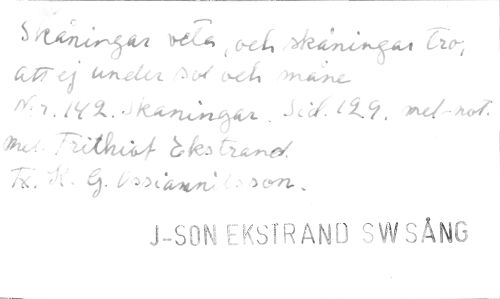 Skåningar veta, och skåningar tro,
att ej under sol och måne
N:r. 142. Skåningar. Sid. 129. mel-not.
mel. Frithiof Ekstrand.
Tx. K. G. Ossiannilsson.
J-SON EKSTRAND SW SÅNG